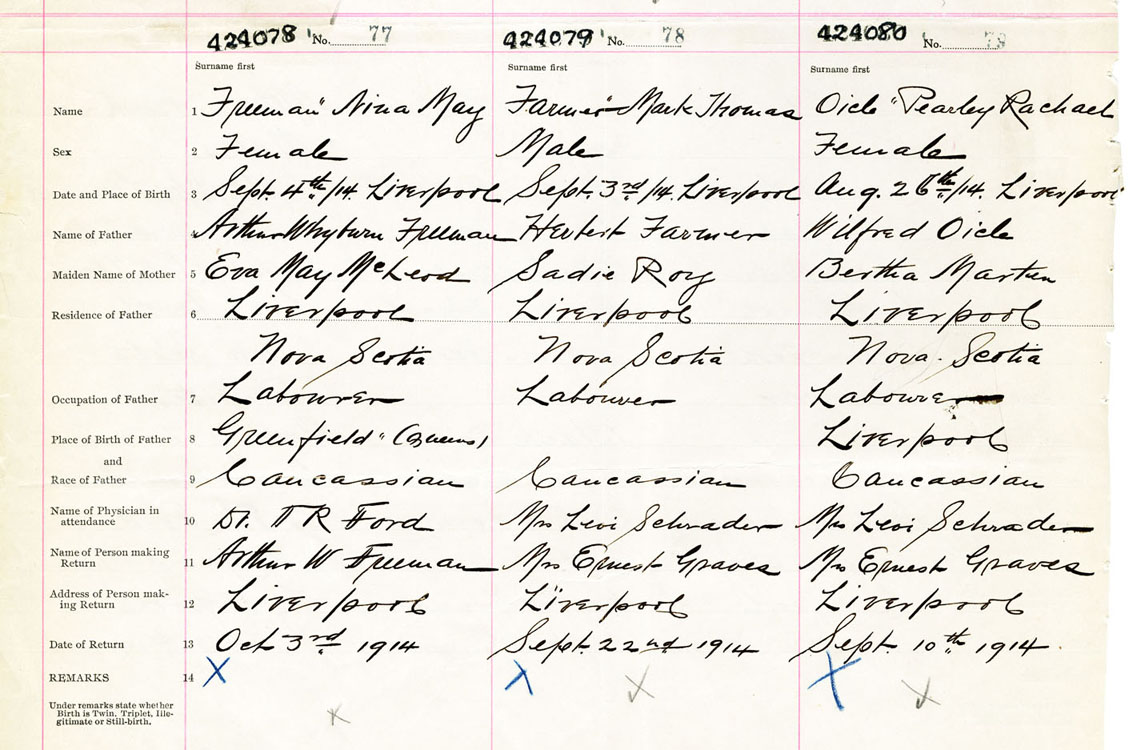 424078 No. 77 424079 No. 78 424080 No. 79
Surname first Surname first Surname first
Name 1 Freeman" Nina May Farmer" Mark Thomas Oicle "Pearley Rachael
Sex 2 Female Male Female
Date and Place of Birth 3 Sept. 4th/14. Liverpool Sept. 3rd/14. Liverpool Aug. 26th/14. Liverpool
Name of Father 4 Arthur Whyburn Freeman Herbert Farmer Wilfred Oicle
Maiden Name of Mother 5 Eva May McLeod Sadie Roy Bertha Marten
Residence of Father 6 Liverpool Liverpool Liverpool
Nova Scotia Nova Scotia Nova. Scotia
Occupation of Father 7 Labourer Labourer Labourer
Place of Birth of Father 8 Greenfield" (Queens) Liverpool
and
Race of Father 9 Caucassian Caucassian Caucassian
Name of Physician in
attendance 10 Dr. Ford Mrs Levi Schrader Mrs Levi Schrader
Name of Person making
Return 11 Arthur W Freeman Mrs Ernest Graves Mrs Ernest Graves
Address of Person mak-
ing Return 12 Liverpool Liverpool Liverpool
Date of Return 13 Oct 3rd 1914 Sept. 22nd 1914 Sept. 10th 1914.
REMARKS 14 X X X
Under remarks state whether
Birth is Twin, Triplet, Ille-
gitimate or Still-birth.